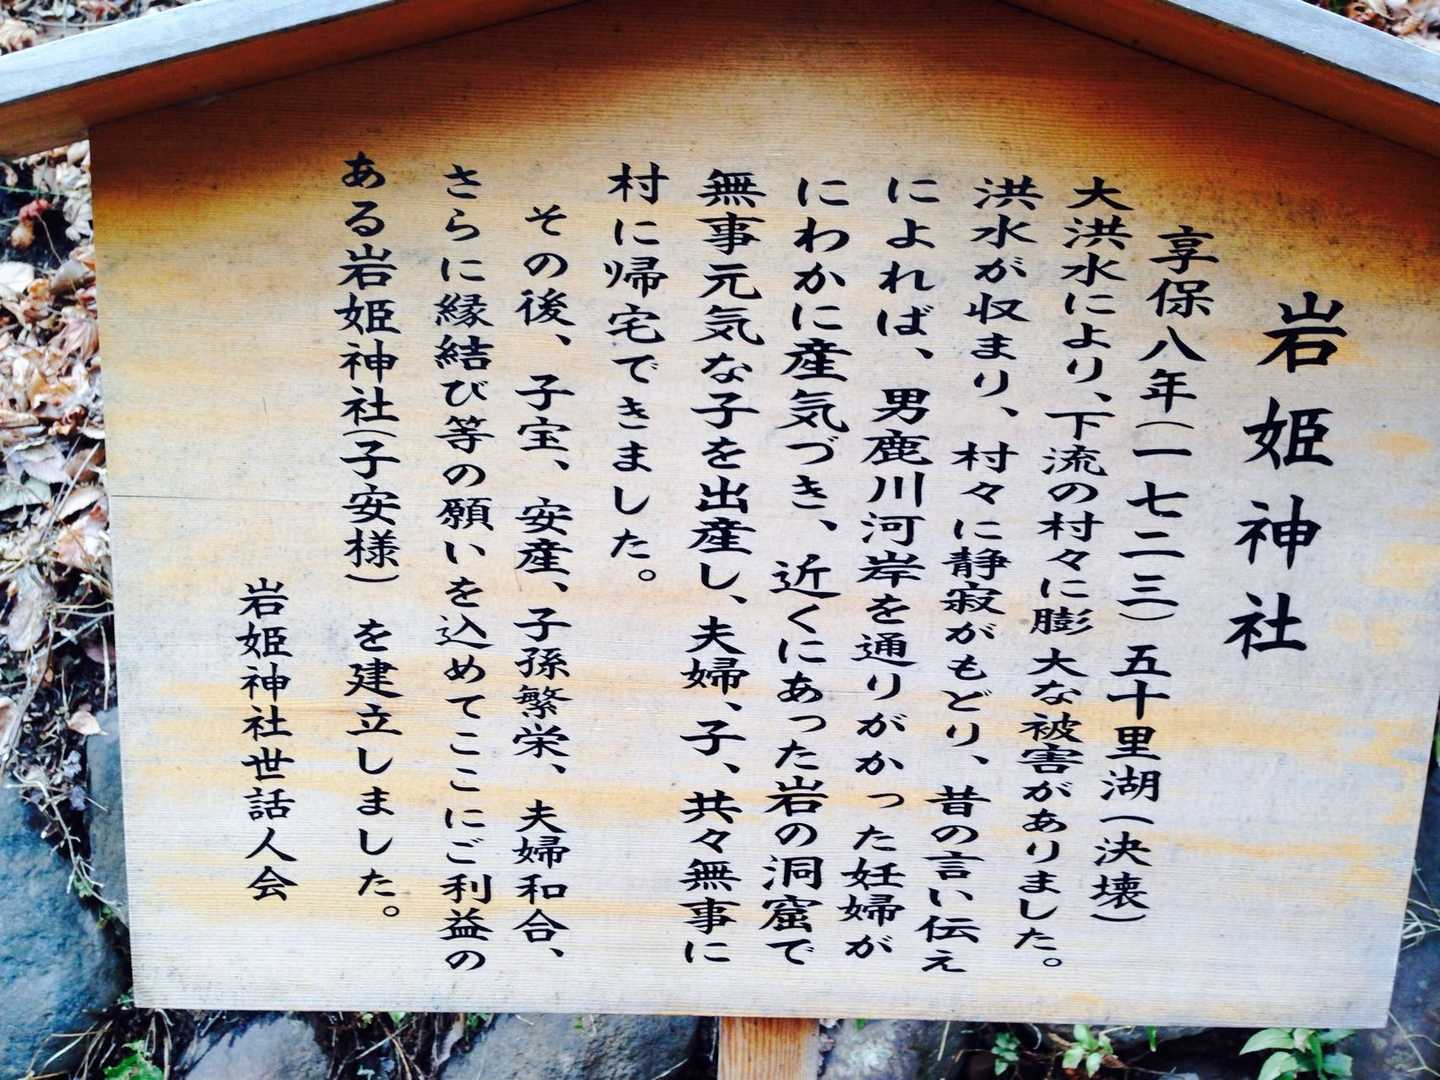 岩姫神社
享保八年(一七二三)五十里湖(決壊)
大洪水により、下流の村々に膨大な被害がありました。
洪水が収まり、村々に静寂がもどり、昔の言い伝え
によれば、男鹿川河岸を通りがかった妊婦が
にわかに産気づき、近くにあった岩の洞窟で
無事元気な子を出産し、夫婦、子、共々無事に
村に帰宅できました。
その後、子宝、安産、子孫繁栄、夫婦和合、
さらに縁結び等の願いを込めてここにご利益の
ある岩姫神社(子安様)を建立しました。
岩姫神社世話人会